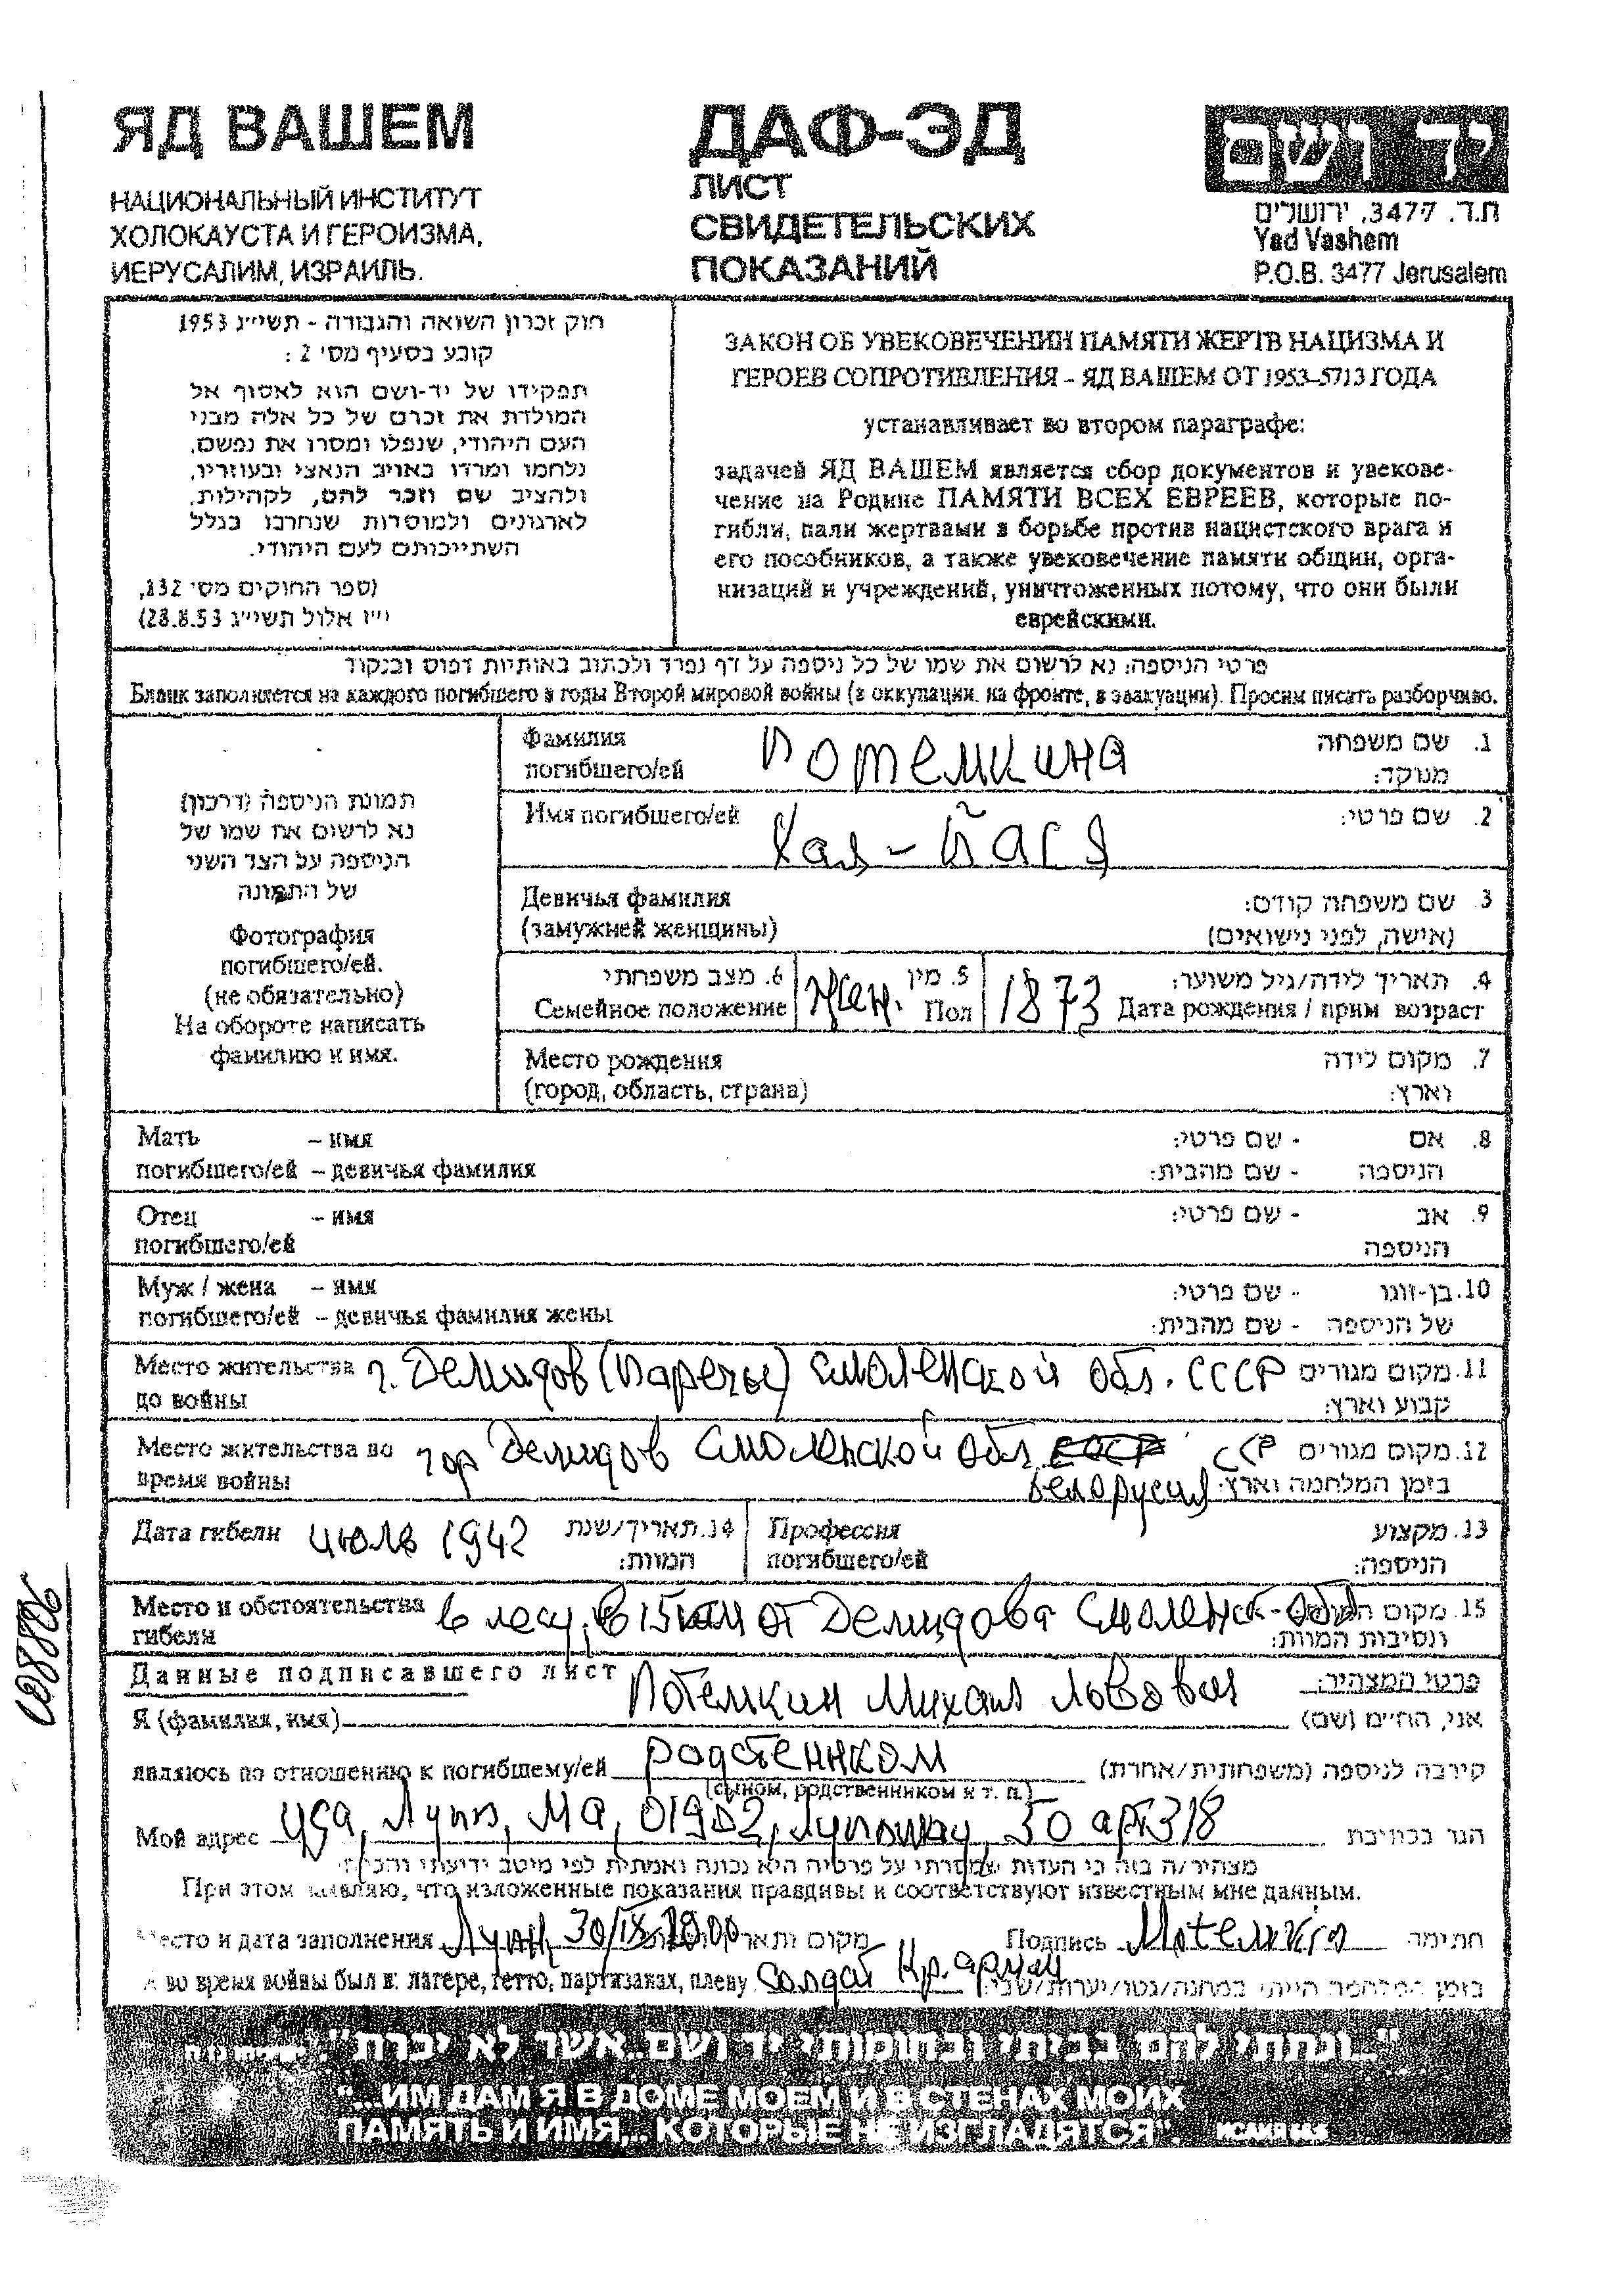 ЯД ВАШЕМ
НАЦИОНАЛЬНЫЙ ИНСТИТУТ
ХОЛОКАУСТА И ГЕРОИЗМА,
ИЕРУСАЛИМ, ИЗРАИЛЬ.
ДАФ-ЭД
ЛИСТ
СВИДЕТЕЛЬСКИХ
ПОКАЗАНИЙ
יד ושם
ת.ד. 3477, ירושלים
Yad Vashem
P.O.B. 3477 Jerusalem
חוק זכרון השואה והגבורה - תשי״ג 1953
קובע בסעיף מס׳ 2 :
תפקידו של יד-ושם הוא לאסוף אל
המולדת את זכרם של כל אלה מבני
העם היהודי, שנפלו ומסרו את נפשם,
נלחמו ומרדו באויב הנאצי ובעוזריו,
ולהציב שם וזכר להם, לקהילות,
לארגונים ולמוסדות שנחרבו בגלל
השתייכותם לעם היהודי.
(ספר החוקים מס׳ 132,
י״ז אלול תשי״ג 28.8.53)
ЗАКОН ОБ УВЕКОВЕЧЕНИИ ПАМЯТИ ЖЕРТВ НАЦИЗМА И
ГЕРОЕВ СОПРОТИВЛЕНИЯ – ЯД ВАШЕМ ОТ 1953–5713 ГОДА
устанавливает во втором параграфе:
задачей ЯД ВАШЕМ является сбор документов и увекове-
чение на Родине ПАМЯТИ ВСЕХ ЕВРЕЕВ, которые по-
гибли, пали жертвами в борьбе против нацистского врага и
его пособников, а также увековечение памяти общин, орга-
низаций и учреждений, уничтоженных потому, что они были
еврейскими.
פרטי הניספה: נא לרשום את שמו של כל ניספה על דף נפרד ולכתוב באותיות דפוס ובנקוד
Бланк заполняется на каждого погибшего в годы Второй мировой войны (в оккупации, на фронте, в эвакуации). Просим писать разборчиво.
תמונת הניספה (דרכון)
נא לרשום את שמו של
הניספה על הצד השני
של התמונה
Фотография
погибшего/ей.
(не обязательно)
На обороте написать
фамилию и имя.
Фамилия Потемкина 1. שם משפחה
погибшего/ей מנוקד:
Имя погибшего/ей Хая-Бася 2. שם פרטי:
Девичья фамилия 3. שם משפחה קודם:
(замужней женщины) (אישה, לפני נישואים)
6. מצב משפחתי 5. מין 4. תאריך לידה/גיל משוער:
Семейное положение Жен. Пол 1873 Дата рождения / прим возраст
Место рождения 7. מקום לידה
(город, область, страна) וארץ:
Мать – имя 8. אם - שם פרטי:
погибшего/ей – девичья фамилия הניספה - שם מהבית:
Отец – имя 9. אב - שם פרטי:
погибшего/ей הניספה
Муж / жена – имя 10. בן-זוגו - שם פרטי:
погибшего/ей – девичья фамилия жены של הניספה - שם מהבית:
Место жительства г. Демидов (Паречье) Смоленской обл. СССР 11. מקום מגורים
до войны קבוע וארץ:
Место жительства во гор Демидов Смоленской обл ССР 12. מקום מגורים
время войны Белорусия בזמן המלחמה וארץ:
Дата гибели июль 1942 14. תאריך/שנת Профессия 13. מקצוע
המוות: погибшего/ей הניספה:
Место и обстоятельства в лесу, в 15 км от Демидова Смоленск-обл 15. מקום
гибели ונסיבות המוות:
Данные подписавшего лист פרטי המצהיר:
Я (фамилия, имя) Потемкин Михаил Львович אני, החי״מ (שם)
являюсь по отношению к погибшему/ей родственником קירבה לניספה (משפחתית/אחרת)
(сыном, родственником и т. п.)
Мой адрес Уса, Лунн, МА, 01902, 50 апт 318 הגר בכתיבת
מצהיר/ה בזה כי העדות שמסרתי על פרטיה היא נכונה ואמתית לפי מיטב ידיעתי
При этом заявляю, что изложенные показания правдивы и соответствуют известным мне данным.
Место и дата заполнения Лунн 30/IX 2000 מקום ותאריך Подпись חתימה
Я во время войны был в: лагере, гетто, партизанах, плену Солдат Кр. армии בזמן המלחמה הייתי במחנה/גטו/יערות/שבי:
"...ונתתי להם בביתי ובחומותי יד ושם...אשר לא יכרת"
"...ИМ ДАМ Я В ДОМЕ МОЕМ И В СТЕНАХ МОИХ
ПАМЯТЬ И ИМЯ,.. КОТОРЫЕ НЕ ИЗГЛАДЯТСЯ".